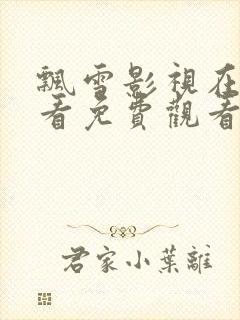 飄雪影視在
看免費觀看
君家小葉離